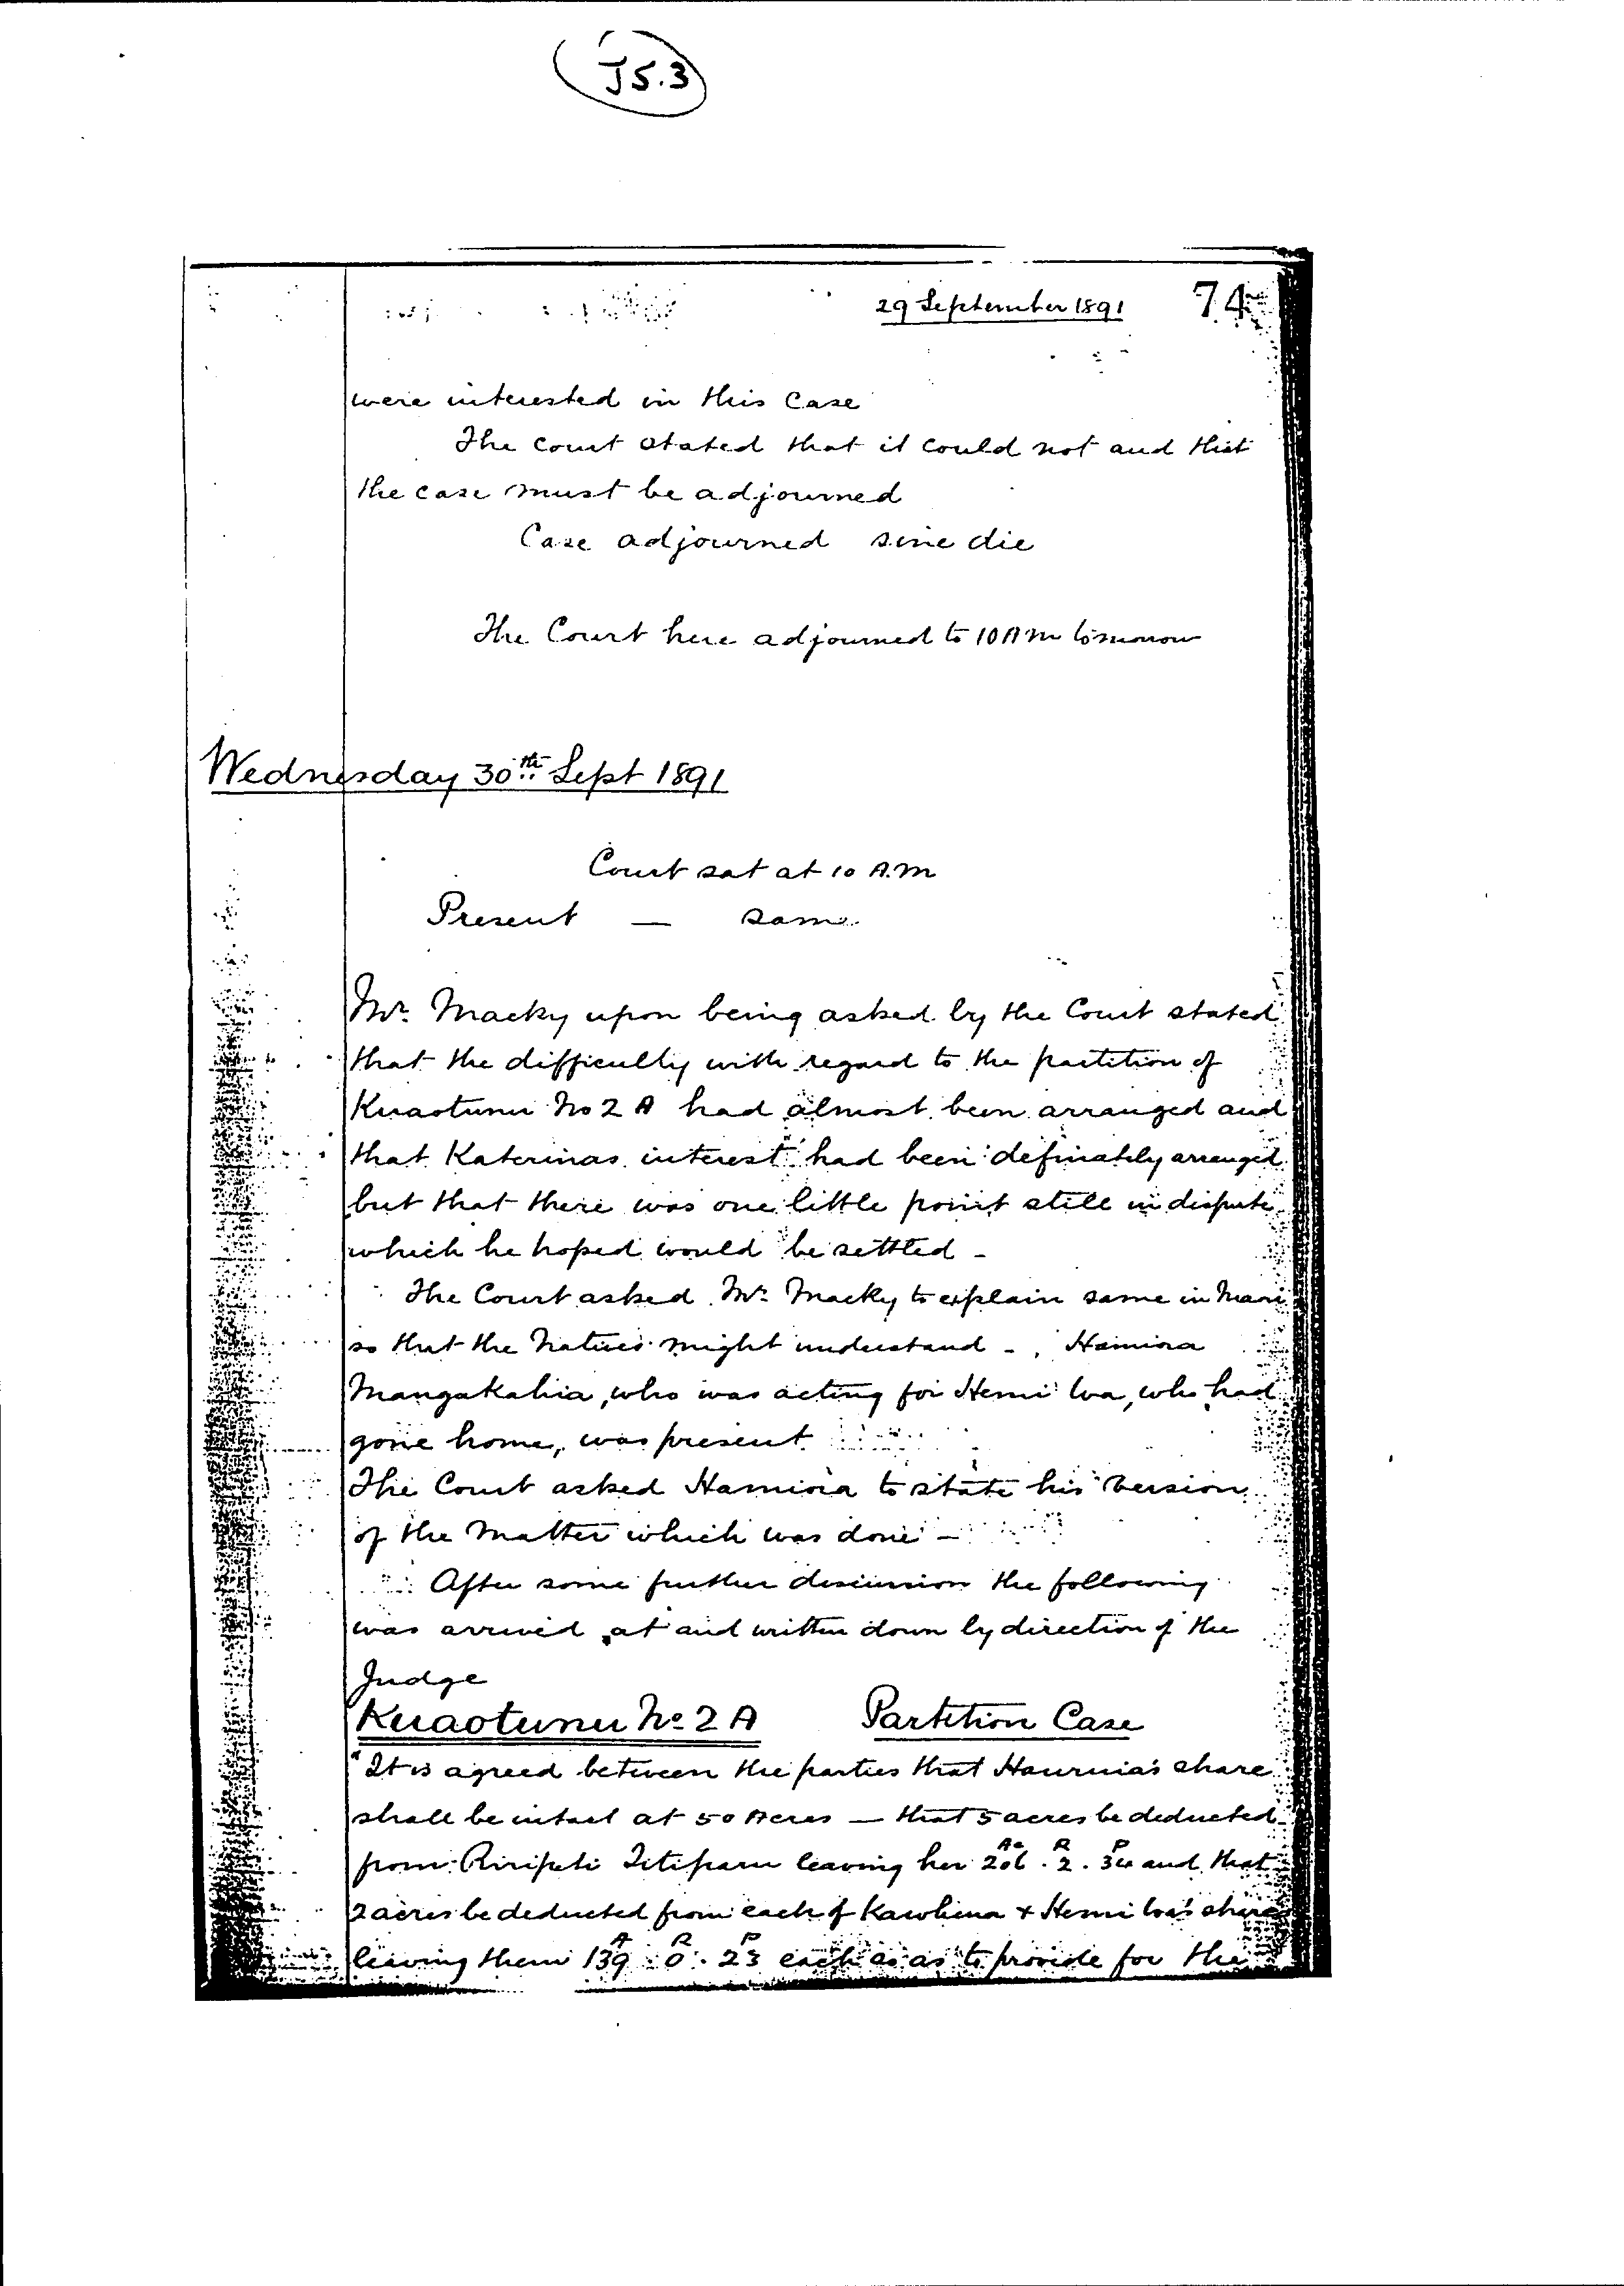 J5.3
29 September 1891 74
were interested in this Case
The Court stated that it could not and that
the case must be adjourned
Case adjourned sine die
The Court here adjourned to 10 AM tomorrow
Wednesday 30th Sept 1891
Court sat at 10 A.M
Present — same
Mr. Macky upon being asked by the Court stated
that the difficulty with regard to the partition of
Kuaotunu No 2 A had almost been arranged and
that Katerinas interest had been definately arranged
but that there was one little point still in dispute
which he hoped would be settled -
The Court asked Mr. Macky to explain same in Maori
so that the Natives might understand - Hamiora
Mangakahia, who was acting for Hemi Wa, who had
gone home, was present
The Court asked Hamiora to state his version
of the Matter which was done -
After some further discussion the following
was arrived at and written down by direction of the
Judge
Kuaotunu No 2 A Partition Case
"It is agreed between the parties that Haurua's share
shall be intact at 50 Acres — that 5 acres be deducted
from Riripeti Titiparu leaving her 206 Ac . 2 R . 34 P and that
2 acres be deducted from each of Kawhena + Hemi Wa's shares
leaving them 139 A . 0 R . 23 P each so as to provide for the